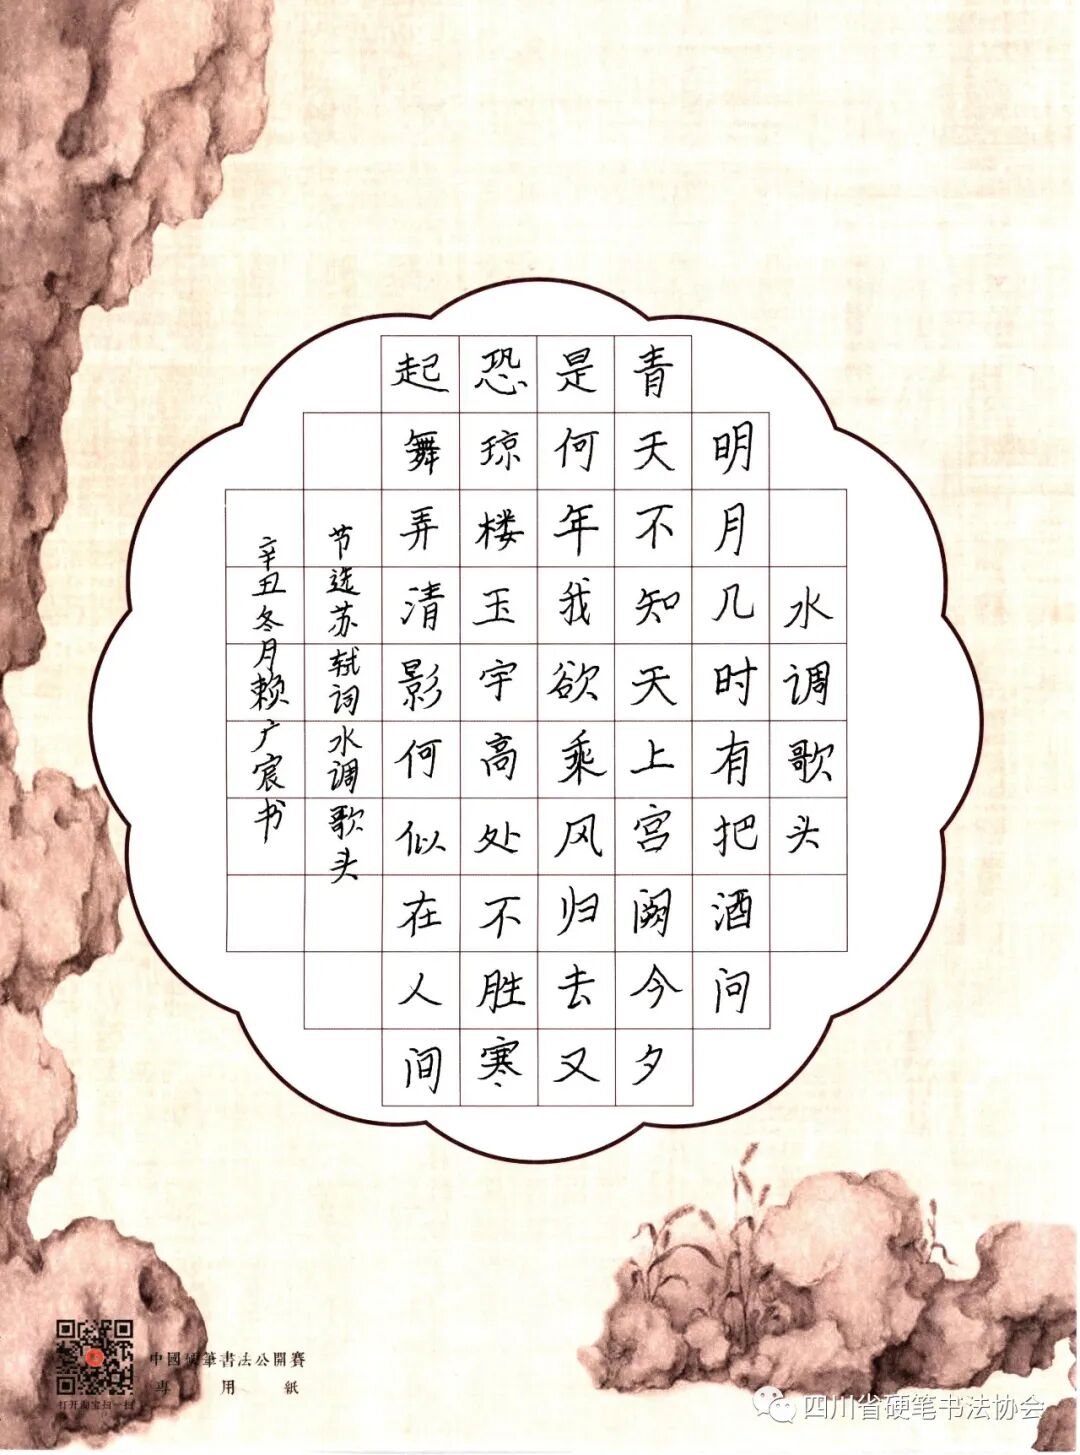 水调歌头
明月几时有把酒问
青天不知天上宫阙今夕
是何年我欲乘风归去又
恐琼楼玉宇高处不胜寒
起舞弄清影何似在人间
节选苏轼词水调歌头
辛丑冬月赖广宸书
中國硬筆書法公開賽
專用紙
打开淘宝扫一扫
四川省硬笔书法协会